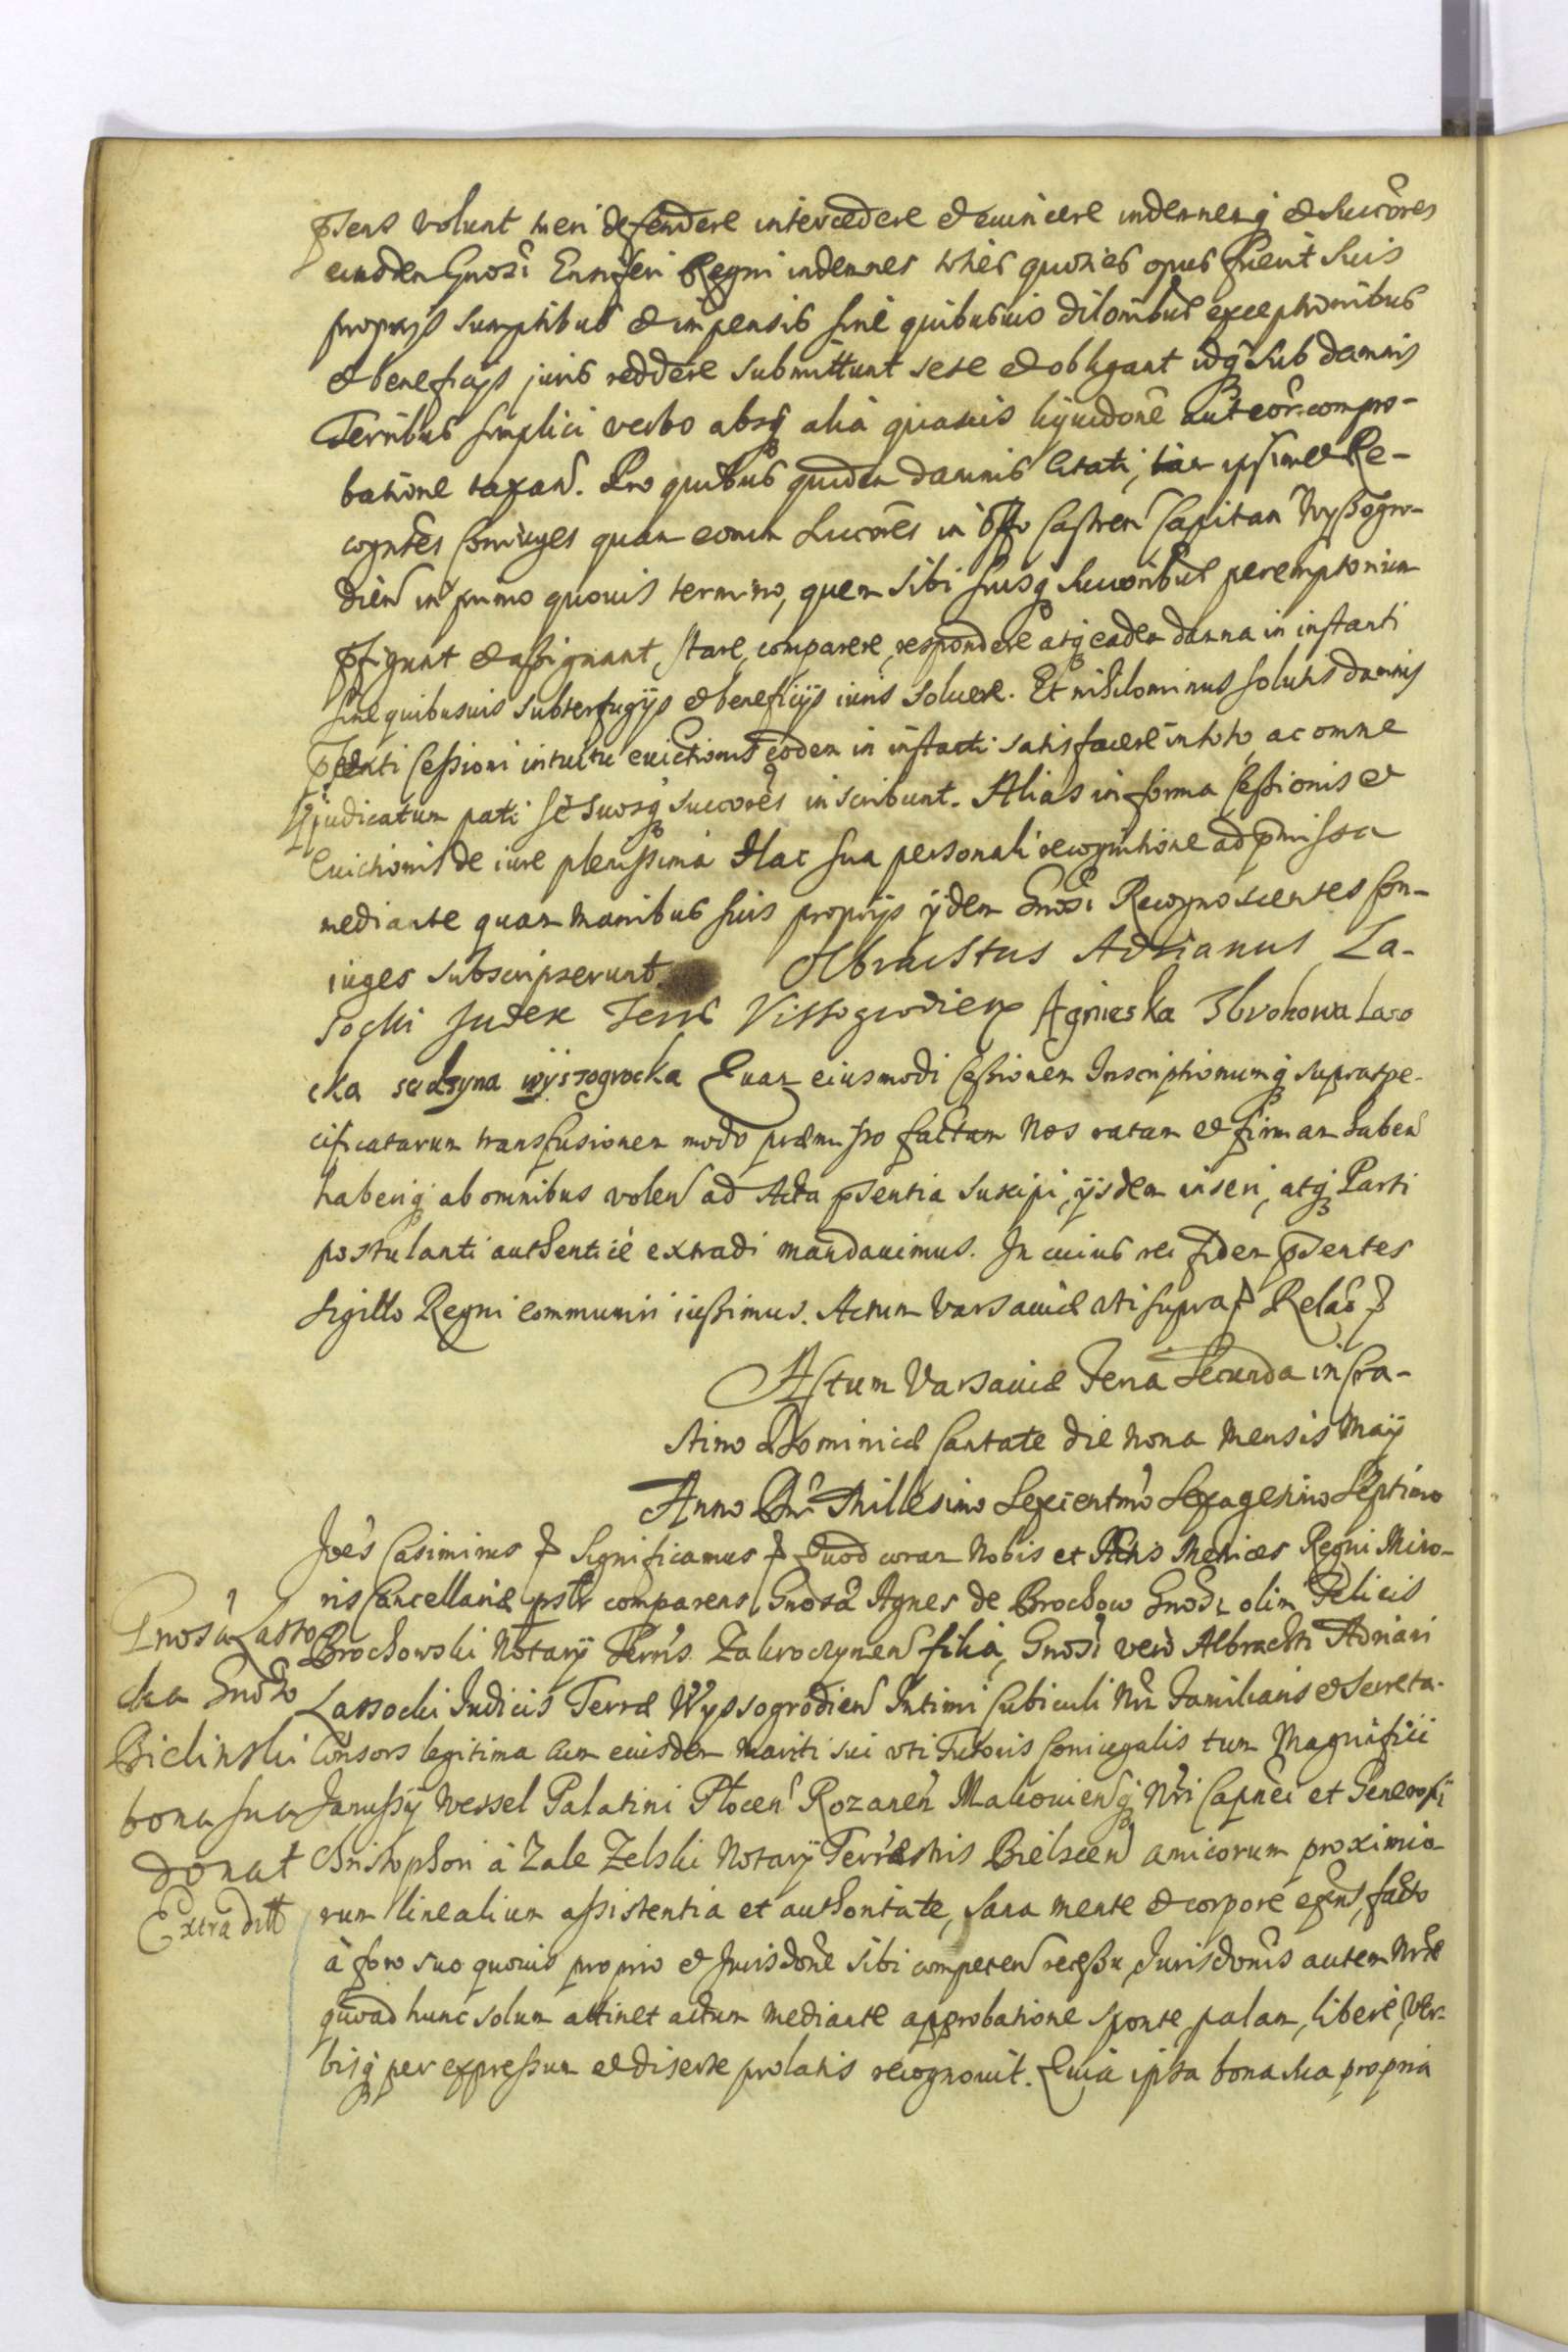 pntens volunt tueri defendere intercedere et euincere indemnemq et Succores
eundem Gnosi Ensiferi Regni indemnes toties quoties opus fuerit suis
proprys sumptibus et impensis sine quibusuis dilonibus exceptionibus
et beneficys juris reddere submittunt sese et obligant idq sub damnis
Terribus simplici verbo absq alia quauis liquidone aut eor. compro-
batione taxan. Pro quibus quidem damnis citati, tam ipsimet Re-
cogntes Coniuges quam eorum Succores in offo Castren Capitan Wyssogro-
dien in primo quouis termino, quem sibi suisq Succoribus peremptorium
pfigunt et assignant, stare, comparere, respondere atq eadem damna in instanti
sine quibusuis subterfugijs et beneficijs iuris soluere. Et nihilominus solutis damnis
pnti Cessioni intuitu euictionis eodem in instanti satisfacere in toto, ac omne
judicatum pati se suosq succores inscribunt. Alias in forma Cessionis et
Euictionis de iure plenissima Hac sua personali recognitione ad pmissa
mediante quam manibus suis proprijs ijdem Gnosi Recognoscentes Con-
iuges subscripserunt Olbrachtus Adrianus La-
socki Judex Terrs Vissogrodien Agnieska Zbrohowa Laso
cka sedzyna wyszogrocka Quam eiusmodi Cessionem Inscriptionumq supraspe-
cificatarum transfusionem modo præmisso factam Nos ratam et firmam haben
haberiq ab omnibus volen ad Acta psentia suscipi, ijsdem inseri, atq Parti
postulanti authenticè extradi mandauimus. In cuius rei fidem psentes
sigillo Regni communiri iussimus. Actum Varsauiæ uti supra Relão
Actum Varsauiæ Feria Secunda in Cra-
stino Dominicæ Cantate die Nona Mensis Maij
Anno Dni Millesimo Sexcentmo Sexagesimo Septimo
Joēs Casimirus Significamus Quod coram Nobis et Actis Metrices Regni Mino-
ris Cancellariæ pstr comparens Gnosa Agnes de Brochow Gnosi olim Felicis
Brochowski Notarij Terris Zakroczymen filia, Gnosi vero Albrachti Adriani
Lassocki Judicis Terræ Wyssogrodien Intimi Cubiculi Nri Familiaris et Secreta-
Consors legitima cum eiusdem mariti sui uti Tutoris Coniugalis tum Magnifici
Janussij Wessel Palatini Plocen Rozanen Makouienq Nri Capnei et Generosi
Christophori à Zale Zelski Notarij Terræstris Bielscen amicorum proximio-
rum linealium assistentia et authoritate, sana mente et corpore exens, facto
à foro suo quouis proprio et Jurisdone sibi competen recessu, Jurisdonis autem Nræ
quoad hunc solum attinet actum mediante approbatione sponte, palam, liberè, Ver-
bisq per expressum et diserte prolatis recognouit. Quia ipsa bona sua propria
Gnosa Lasso
cka Gnoso
Bielinski
bona sua
donat
Extradtt